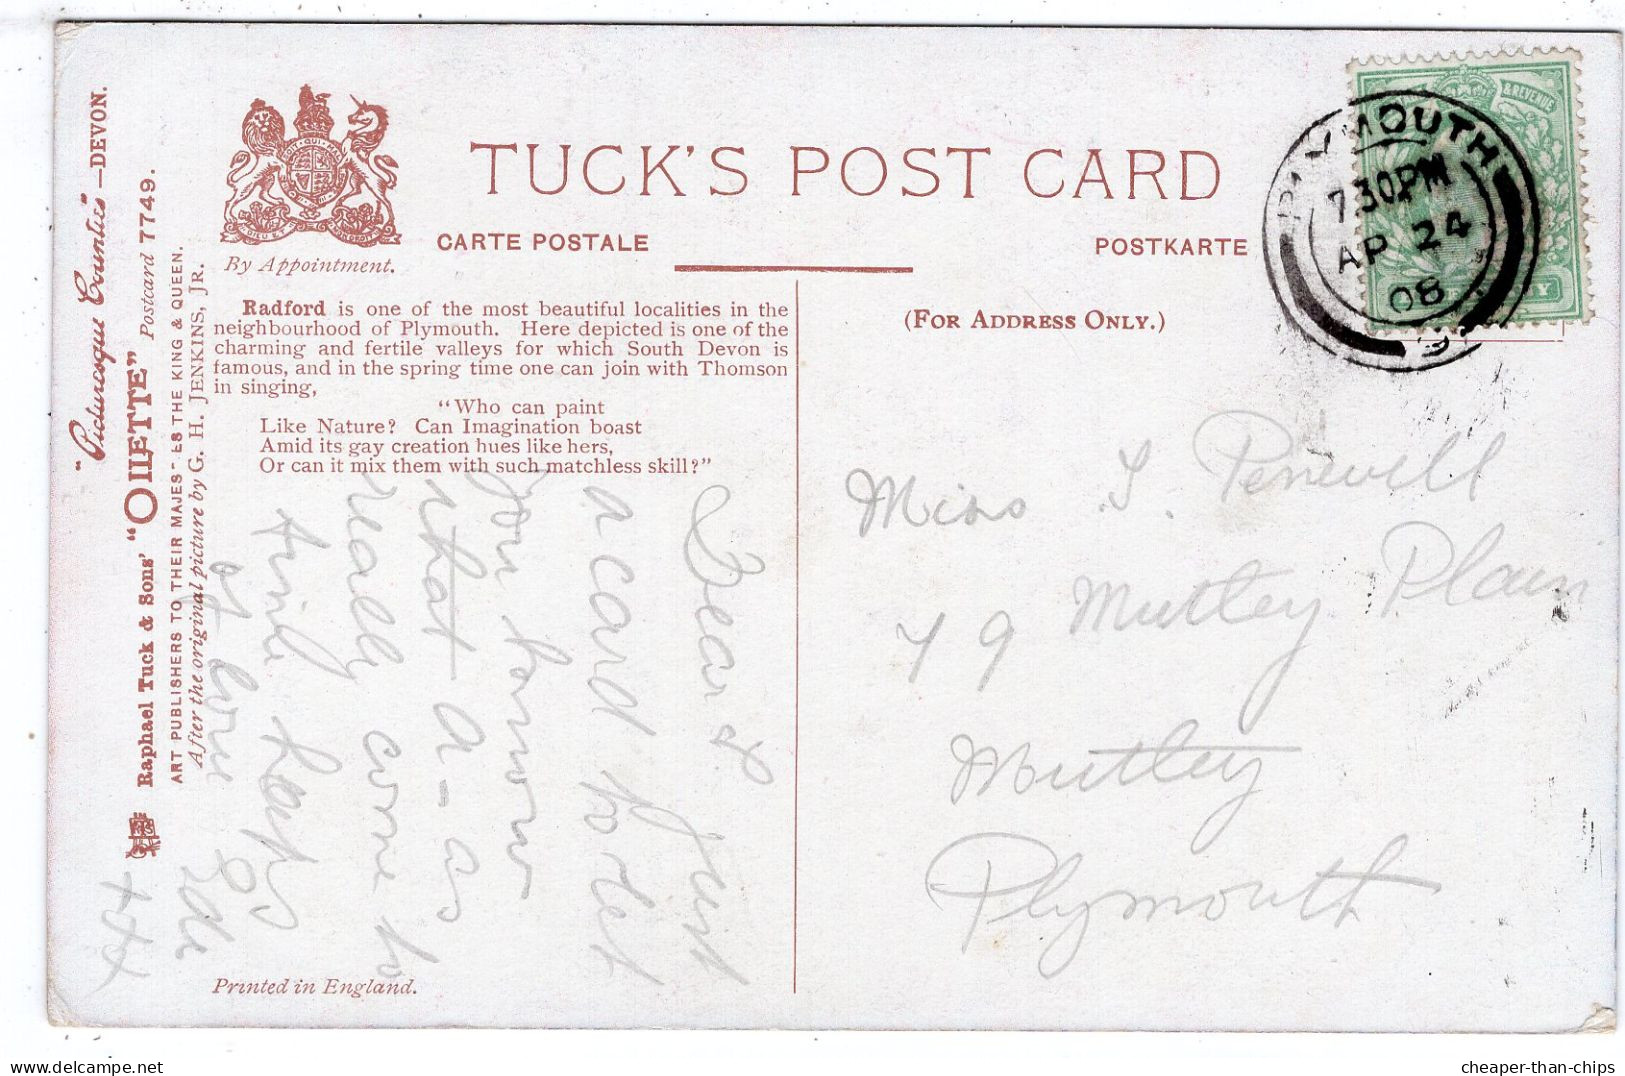 "Picturesque Counties"—DEVON.
Raphael Tuck & Sons' "OILETTE" Postcard 7749.
ART PUBLISHERS TO THEIR MAJESTIES THE KING & QUEEN.
After the original picture by G. H. JENKINS, JR.
By Appointment.
TUCK'S POST CARD
CARTE POSTALE
POSTKARTE
Radford is one of the most beautiful localities in the
neighbourhood of Plymouth. Here depicted is one of the
charming and fertile valleys for which South Devon is
famous, and in the spring time one can join with Thomson
in singing,
"Who can paint
Like Nature? Can Imagination boast
Amid its gay creation hues like hers,
Or can it mix them with such matchless skill?"
Dear Just
a card to let
you know
that A - as
really come to
heaps
of love
xxx
Printed in England.
(FOR ADDRESS ONLY.)
& REVENUE
PLYMOUTH
7.30PM
AP 24
08
Miss J. Penwill
79 Mutley Plain
Mutley
Plymouth
cheaper-than-chips